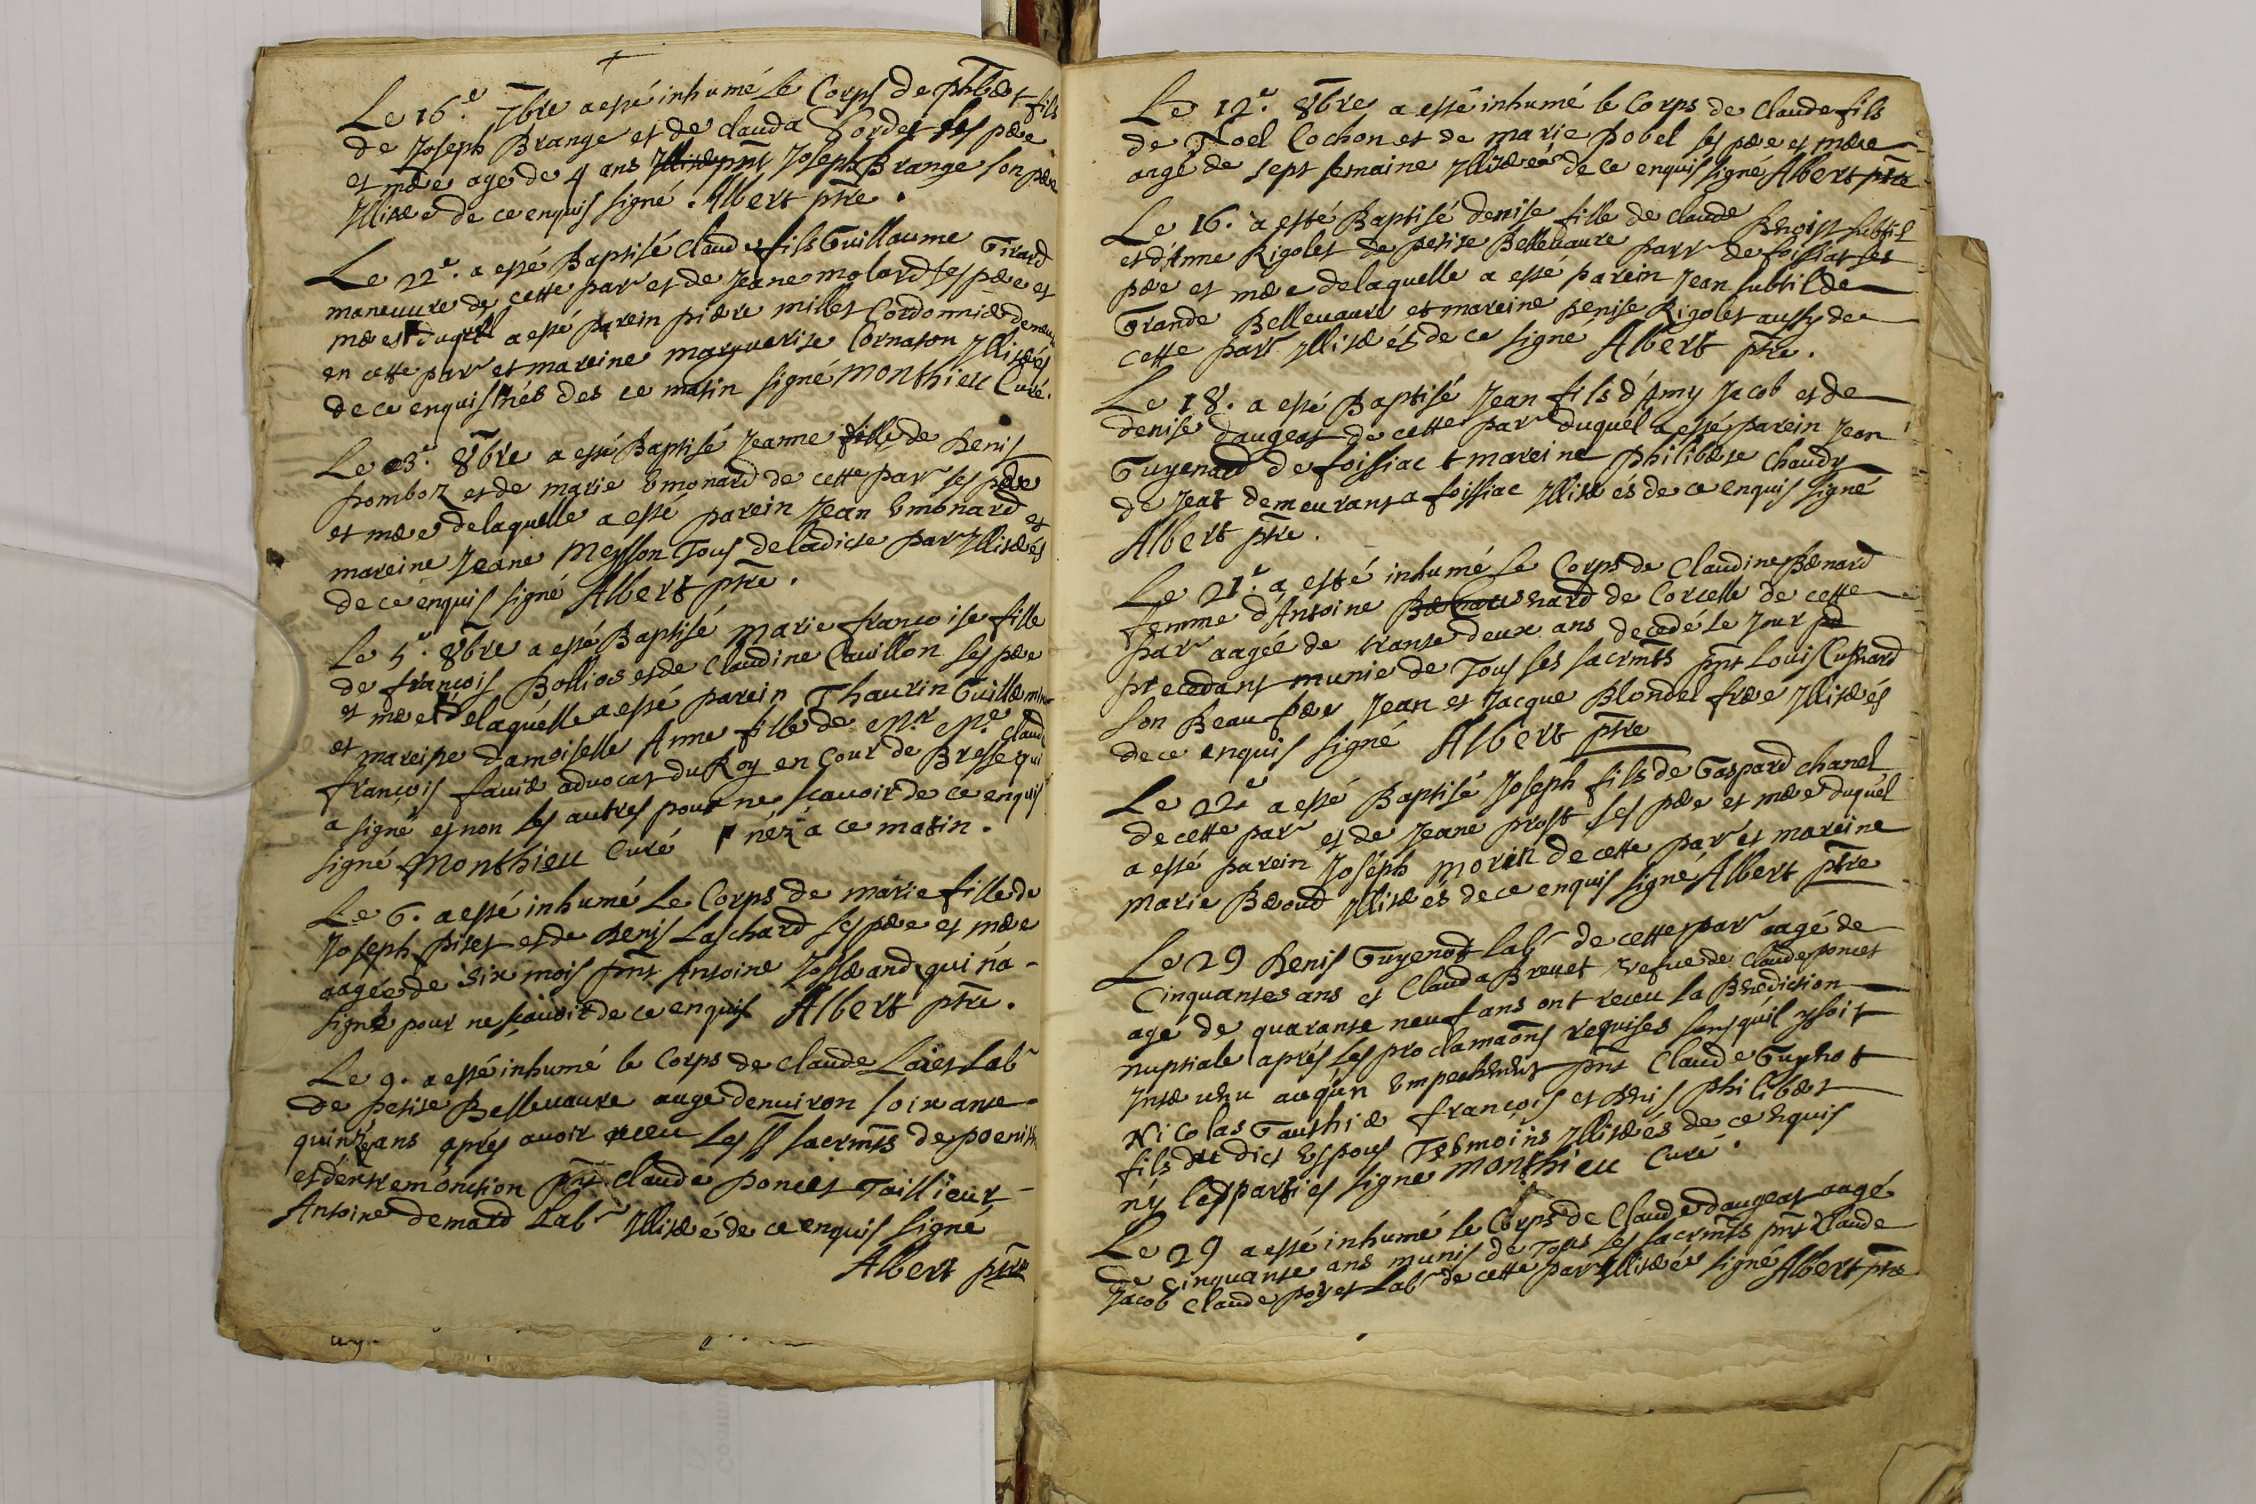 Le 16.e 7bre a esté inhumé Le Corps de phlbert fils
de Joseph Brange et de clauda Bordet ses pere
et mere age de 4 ans Joseph Brange son pere
Illiteré de ce enquis signé Albert ptre.
Le 22e. a esté Baptisé Claude fils Guillaume Girard
maneuvre de cette parr et de Jeane molard ses pere et
mere duquel a esté parein piere millet Cordonnier demeur
en cette parr et mareine marguerite Cornaton Illiterés
de ce enquis nés des ce matin signé Monthieu Curé.
Le 03e. 8bre a esté Baptisé Jeanne fille de Denis
pombon et de marie Emonard de cette parr ses pere
et mere delaquelle a esté parein Jean Emonard et
mareine Jeane Meysson Tous deladicte parr Illiterés
de ce enquis signé Albert ptre.
Le 5e. 8bre a esté Baptisé marie francoise fille
de françois Bolliod et de Claudine Cavillon ses pere
et mere delaquelle a esté parein Thaurin Guillemin
et mareine damoiselle Anne fille de Mr Me Claude
françois favier advocat du Roy en Cour de Bresse qui
a signé et non les autres pour ne scavoir de ce enquis
signé Monthieu Curé néz a ce matin.
Le 6. a esté inhumé Le Corps de marie fille de
Joseph pitet et de Denis Laschard ses pere et mere
aagée de six mois pnt Antoine Josserand qui n'a -
signé pour ne scavoir de ce enquis Albert ptre.
Le 9. a esté inhumé le Corps de Claude Laiet Labr
de petite Bellevavre aage denviron soixante -
quinze ans aprés avoir receu Les SS sacrmts de poenit
et d'extremonction pnt claude poncet Taillieur -
Antoine demard Labr Illiteré de ce enquis signé
Albert ptre
Le 12e. 8bre a esté inhumé le Corps de Claude fils
de Noel Cochon et de marie pobel ses pere et mere
angé de sept semaine Illiterés de ce enquis signé Albert ptre
Le 16. a esté Baptisé denise fille de claude Benoist subtil
et d'Anne Rigolet de petite Bellevavre parr de foissiat ses
pere et mere delaquelle a esté parein Jean subtil de
Grande Bellevavre et mareine Denise Rigolet aussy de
cette parr Illiterés de ce signé Albert ptre.
Le 18. a esté Baptisé Jean fils d'Amy Jacob et de
denise daugeat de cette parr duquel a esté parein Jean
Guyenard de foissiac et mareine philiberte Chaudy
de Jeat demeurant a foissiac Illiterés de ce enquis signé
Albert ptre.
Le 21e. a esté inhumé Le Corps de Claudine Benard
femme d'Antoine nard de Corcelle de cette
parr aagée de trante deux ans decedé le Jour
precedant munie de Tous ses sacrmts pnt Louis Cushard
son Beau frere Jean et Jacque Blondel frere Illiterés
de ce enquis signé Albert ptre
Le 22e a esté Baptisé Joseph fils de Gaspard chanel
de cette parr et de Jeane prost ses pere et mere duquel
a esté parein Joseph morin de cette parr et mareine
Marie Beroud Illiterés de ce enquis signé Albert ptre
Le 29 Denis Guyenot Labr de cette parr aagé de
Cinquantes ans et Clauda Brevet vefue de Claude poncet
agé de quarante neuf ans ont receu La Bnédiction
nuptiale aprés les proclamaons requises sans quil ysoit
Intervenu augun Empechemt pnt Claude Guynot
Nicolas Gauthier françois et Denis philibert
fils du dict Espous Tesmoins Illiterés de ce enquis
ny les parties signe Monthieu Curé.
Le 29 a esté inhumé le Corps de Claude daugeat aagé
de cinquante ans munis de Tous ses sacrmts pnt Claude
Jacob Claude poyet Labr de cette parr Illiterés signé Albert ptre